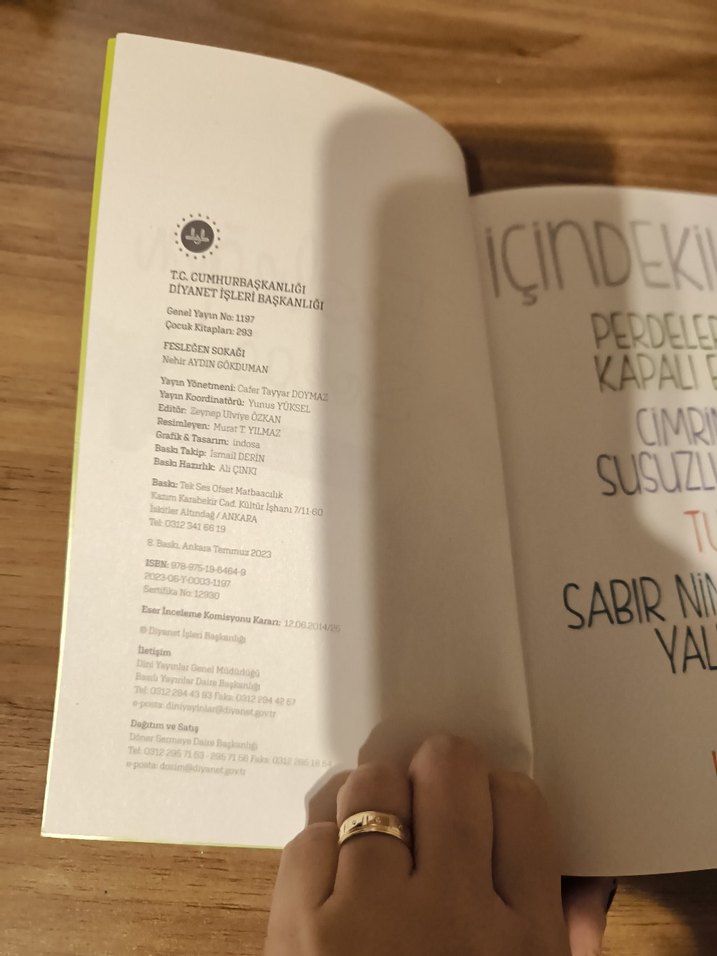 T.C. CUMHURBAŞKANLIĞI
DİYANET İŞLERİ BAŞKANLIĞI
Genel Yayın No: 1197
Çocuk Kitapları: 293
FESLEĞEN SOKAĞI
Nehir AYDIN GÖKDUMAN
Yayın Yönetmeni: Cafer Tayyar DOYMAZ
Yayın Koordinatörü: Yunus YÜKSEL
Editör: Zeynep Ulviye ÖZKAN
Resimleyen: Murat T. YILMAZ
Grafik & Tasarım: indosa
Baskı Takip: İsmail DERİN
Baskı Hazırlık: Ali ÇINKI
Baskı: Tek Ses Ofset Matbaacılık
Kazım Karabekir Cad. Kültür İşhanı 7/11-60
İskitler Altındağ / ANKARA
Tel: 0312 341 66 19
8. Baskı, Ankara Temmuz 2023
ISBN: 978-975-19-6464-9
2023-06-Y-0003-1197
Sertifika No: 12930
Eser İnceleme Komisyonu Kararı: 12.06.2014/25
© Diyanet İşleri Başkanlığı
İletişim
Dini Yayınlar Genel Müdürlüğü
Basılı Yayınlar Daire Başkanlığı
Tel: 0312 294 43 93 Faks: 0312 294 42 57
e-posta: diniyayinlar@diyanet.gov.tr
Dağıtım ve Satış
Döner Sermaye Daire Başkanlığı
Tel: 0312 295 71 53 - 295 71 56 Faks: 0312 285 18 54
e-posta: dosim@diyanet.gov.tr
İÇİNDEKİL
PERDELER
KAPALI E
CİMRİN
SUSUZLU
TU
SABIR NİM
YAL